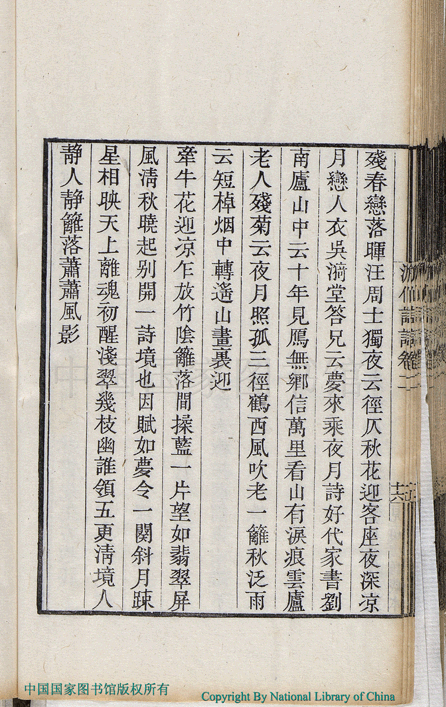 殘春戀落暉汪周士獨夜云徑仄秋花迎客座夜深凉
月戀人衣吳漪堂答兄云夢來乘夜月詩好代家書劉
南廬山中云十年見鴈無鄉信萬里看山有淚痕雲廬
老人殘菊云夜月照孤三徑鶴西風吹老一籬秋泛雨
云短棹烟中轉遙山畫裏迎
牽牛花迎凉乍放竹陰籬落間揉藍一片望如翡翠屏
風淸秋曉起别開一詩境也因賦如夢令一闋斜月疎
星相映天上離魂初醒淺翠幾枝幽誰領五更淸境人
靜人靜籬落蕭蕭風影
詩話卷二
中国国家图书馆版权所有
Copyright By National Library of China